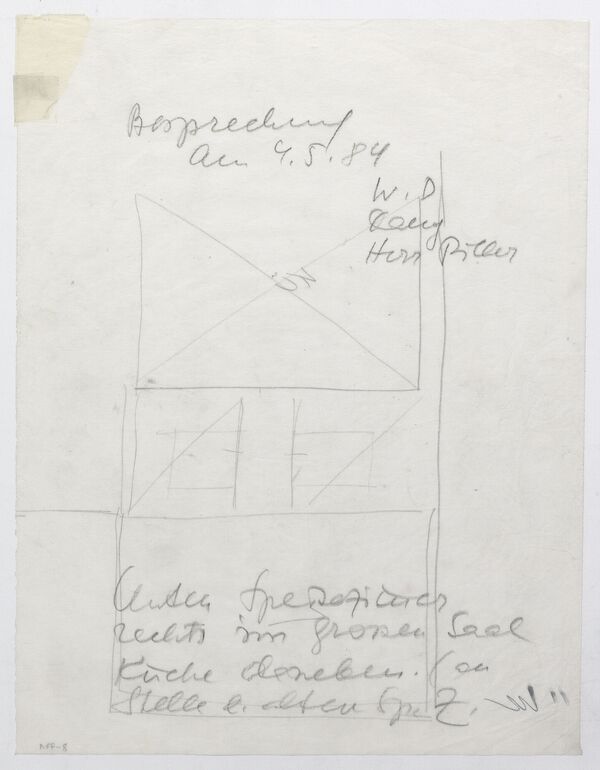 Besprechung
am 4.5.84
W.D
Herr Piller
Unten Speisezimer
rechts im grossen Saal
Küche daneben. (an
Stelle d. alten Spei Z.
NFF-8